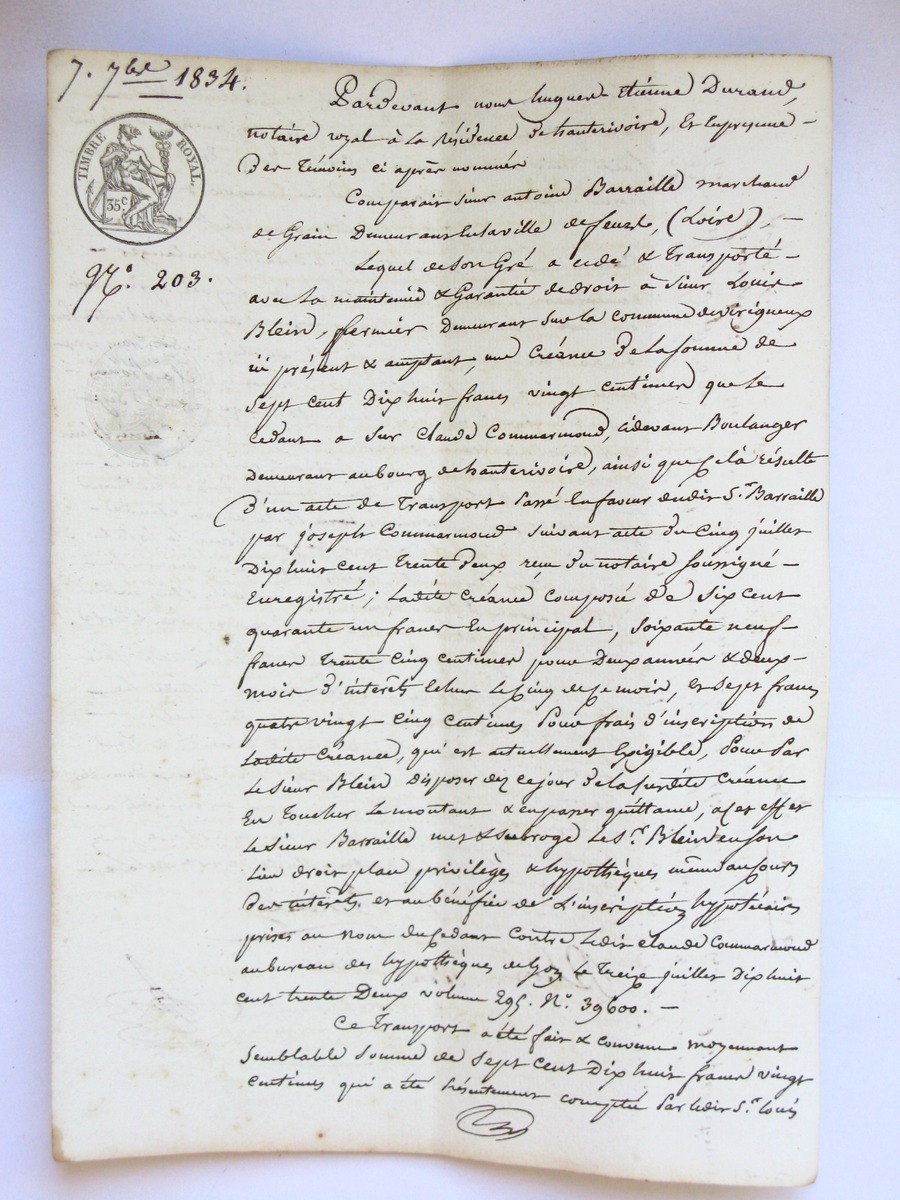 7. 7bre 1834.
TIMBRE ROYAL.
35c.
No. 203.
Pardevant nous hugues Etiénne Durand,
notaire royal à La Résidence de hauterivoire, Et enpresence –
Des Témoins ci après nommés
Comparait sieur antoine Barraille marchand
de Grain Demeurant Enlaville defeurs, (Loire), –
Lequel de Son Gré a cedé & Transporté –
avec La maintenue & Garantie de droit à Sieur Louis
Blein, fermier Demeurant sur la commune de virigneux
ici présent & acceptant, une Créance De la Somme de
Sept Cent Dix huit francs vingt centimes que le
Cedant a Sur Claude Commarmond, cidevant Boulanger
Demeurant au bourg de hauterivoire, ainsi que Celà résulte
D'un acte de Transport Passé En faveur dudit Sr. Barraille
par joseph Commarmond Suivant acte du Cinq juillet
Dix huit Cent Trente Deux, reçu Du notaire Soussigné –
Enregistré; Ladite Créance Composée De Six Cent
quarante un francs En principal, Soixante neuf
francs Trente Cinq Centimes pour Deux années & deux
mois D'intérêts échus Le Cinq de ce mois, Et Sept francs
quatre vingt Cinq Centimes Pour frais D'inscription de
Ladite Créance, qui est actuellement Exigible, Pour Par
Le Sieur Blein Disposer dez ce jour De la susdite Créance
En Toucher Le montant & en passer quittance, a Cet effet
Le Sieur Barraille met & Subroge Le Sr. Blein en son
Lieu droit place privilèges & hypothèques même au cours
Des intérêts et au bénéfice de L'inscription hypotécaire
prise au nom du Cedant Contre Ledit Claude Commarmond
au bureau des hypothèques de Lyon Le Treize juillet Dix huit
Cent trente Deux volume 295. No. 39600. –
Ce Transport a été fait & Convenu moyennant
Semblable Somme de Sept Cent Dix huit francs vingt
Centimes qui a été Présentement Comptée Par Ledit Sr. Louis